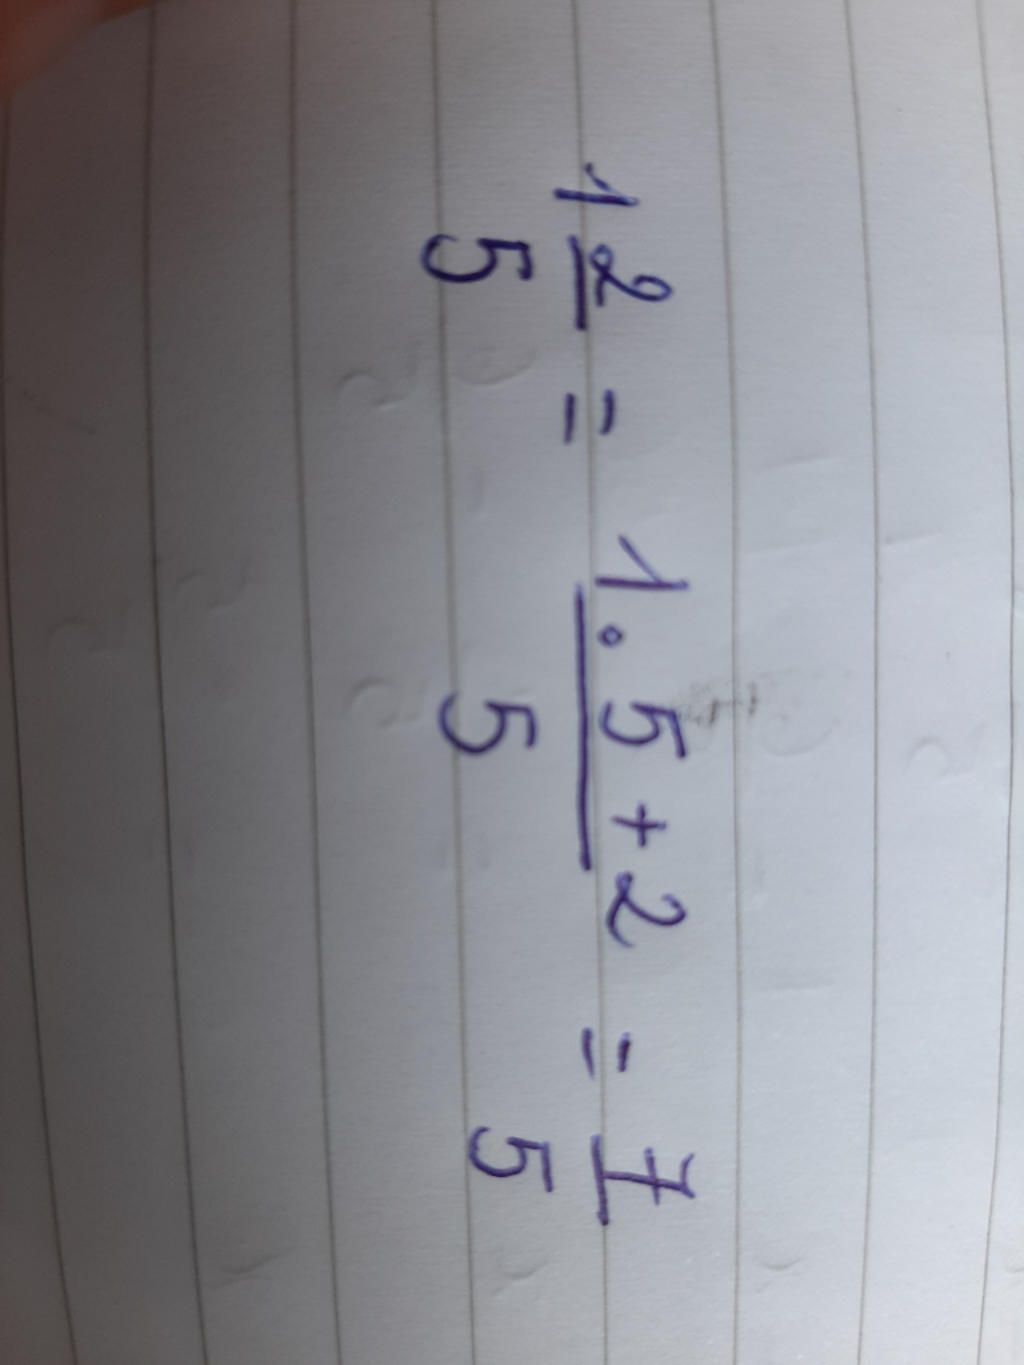 1 2/5 = (1 · 5 + 2)/5 = 7/5